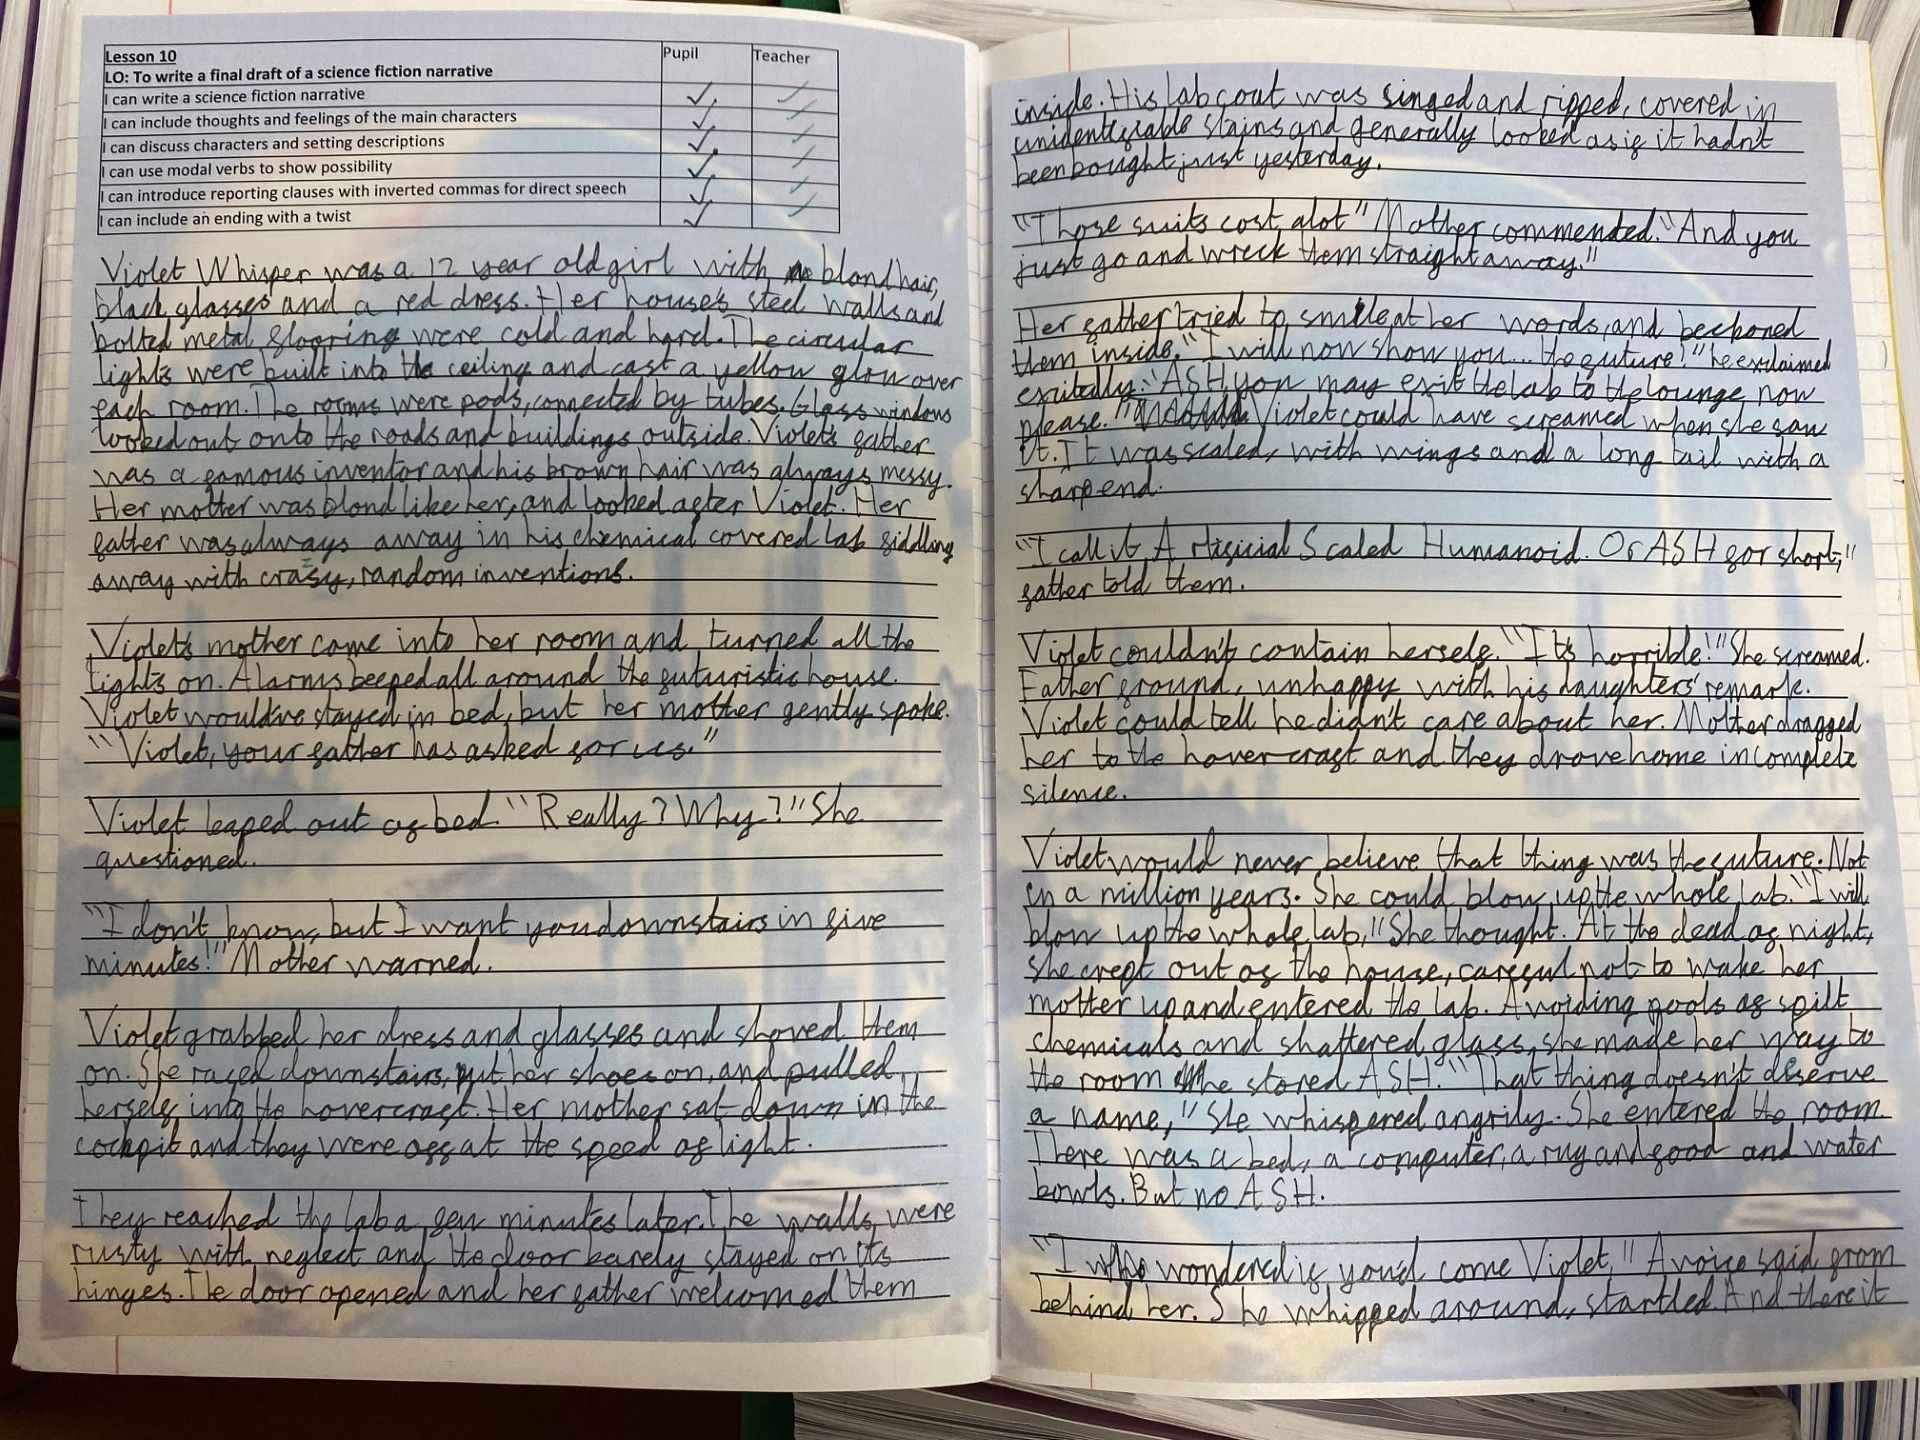 Lesson 10
LO: To write a final draft of a science fiction narrative
Pupil
Teacher
I can write a science fiction narrative
I can include thoughts and feelings of the main characters
I can discuss characters and setting descriptions
I can use modal verbs to show possibility
I can introduce reporting clauses with inverted commas for direct speech
I can include an ending with a twist
Violet Whisper was a 12 year old girl with blond hair,
black glasses and a red dress. Her house's steel walls and
bolted metal flooring were cold and hard. The circular
lights were built into the ceiling and cast a yellow glow over
each room. The rooms were pods, connected by tubes. Glass windows
looked out onto the roads and buildings outside. Violet's father
was a famous inventor and his brown hair was always messy.
Her mother was blond like her, and looked after Violet. Her
father was always away in his chemical covered lab fiddling
away with crazy, random inventions.
Violet's mother came into her room and turned all the
lights on. Alarms beeped all around the futuristic house.
Violet would've stayed in bed, but her mother gently spoke.
"Violet, your father has asked for us."
Violet leaped out of bed. "Really? Why?" She
questioned.
"I don't know, but I want you downstairs in five
minutes!" Mother warned.
Violet grabbed her dress and glasses and shoved them
on. She raced downstairs, put her shoes on, and pulled
herself into the hovercraft. Her mother sat down in the
cockpit and they were off at the speed of light.
They reached the lab a few minutes later. The walls were
rusty with neglect and the door barely stayed on its
hinges. The door opened and her father welcomed them
inside. His lab coat was singed and ripped, covered in
unidentifiable stains and generally looked as if it hadn't
been bought just yesterday.
"Those suits cost alot" Mother commented. "And you
just go and wreck them straight away."
Her father tried to smile at her words, and beckoned
them inside. "I will now show you... the future!" he exclaimed
exitedly. "ASH, you may exit the lab to the lounge now
please." Violet could have screamed when she saw
it. It was scaled, with wings and a long tail with a
sharp end.
"I call it Artificial Scaled Humanoid. Or ASH for short,"
father told them.
Violet couldn't contain herself. "It's horrible!" She screamed.
Father frowned, unhappy with his daughters' remark.
Violet could tell he didn't care about her. Mother dragged
her to the hovercraft and they drove home in complete
silence.
Violet would never believe that thing was the future. Not
in a million years. She could blow up the whole lab. "I will
blow up the whole lab," She thought. At the dead of night,
she crept out of the house, careful not to wake her
mother up and entered the lab. Avoiding pools of spilt
chemicals and shattered glass, she made her way to
the room he stored ASH. "That thing doesn't deserve
a name," She whispered angrily. She entered the room.
There was a bed, a computer, a rug and food and water
bowls. But no ASH.
"I wondered if you'd come Violet," A voice said from
behind her. She whipped around, startled. And there it